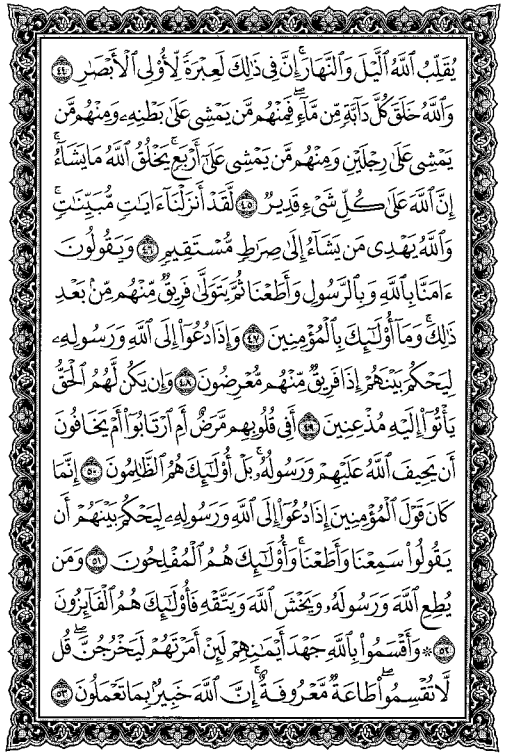 يُقَلِّبُ ٱللَّهُ ٱلَّيْلَ وَٱلنَّهَارَۚ إِنَّ فِي ذَٰلِكَ لَعِبْرَةً لِّأُو۟لِي ٱلْأَبْصَٰرِ ٤٤
وَٱللَّهُ خَلَقَ كُلَّ دَآبَّةٍ مِّن مَّآءٍۖ فَمِنْهُم مَّن يَمْشِي عَلَىٰ بَطْنِهِۦ وَمِنْهُم مَّن
يَمْشِي عَلَىٰ رِجْلَيْنِ وَمِنْهُم مَّن يَمْشِي عَلَىٰٓ أَرْبَعٍۚ يَخْلُقُ ٱللَّهُ مَا يَشَآءُۚ
إِنَّ ٱللَّهَ عَلَىٰ كُلِّ شَيْءٍ قَدِيرٌ ٤٥ لَّقَدْ أَنزَلْنَآ ءَايَٰتٍ مُّبَيِّنَٰتٍۚ
وَٱللَّهُ يَهْدِي مَن يَشَآءُ إِلَىٰ صِرَٰطٍ مُّسْتَقِيمٍ ٤٦ وَيَقُولُونَ
ءَامَنَّا بِٱللَّهِ وَبِٱلرَّسُولِ وَأَطَعْنَا ثُمَّ يَتَوَلَّىٰ فَرِيقٌ مِّنْهُم مِّنۢ بَعْدِ
ذَٰلِكَۚ وَمَآ أُو۟لَٰٓئِكَ بِٱلْمُؤْمِنِينَ ٤٧ وَإِذَا دُعُوٓا۟ إِلَى ٱللَّهِ وَرَسُولِهِۦ
لِيَحْكُمَ بَيْنَهُمْ إِذَا فَرِيقٌ مِّنْهُم مُّعْرِضُونَ ٤٨ وَإِن يَكُن لَّهُمُ ٱلْحَقُّ
يَأْتُوٓا۟ إِلَيْهِ مُذْعِنِينَ ٤٩ أَفِي قُلُوبِهِم مَّرَضٌ أَمِ ٱرْتَابُوٓا۟ أَمْ يَخَافُونَ
أَن يَحِيفَ ٱللَّهُ عَلَيْهِمْ وَرَسُولُهُۥۚ بَلْ أُو۟لَٰٓئِكَ هُمُ ٱلظَّٰلِمُونَ ٥٠ إِنَّمَا
كَانَ قَوْلَ ٱلْمُؤْمِنِينَ إِذَا دُعُوٓا۟ إِلَى ٱللَّهِ وَرَسُولِهِۦ لِيَحْكُمَ بَيْنَهُمْ أَن
يَقُولُوا۟ سَمِعْنَا وَأَطَعْنَاۚ وَأُو۟لَٰٓئِكَ هُمُ ٱلْمُفْلِحُونَ ٥١ وَمَن
يُطِعِ ٱللَّهَ وَرَسُولَهُۥ وَيَخْشَ ٱللَّهَ وَيَتَّقْهِ فَأُو۟لَٰٓئِكَ هُمُ ٱلْفَآئِزُونَ
٥٢ * وَأَقْسَمُوا۟ بِٱللَّهِ جَهْدَ أَيْمَٰنِهِمْ لَئِنْ أَمَرْتَهُمْ لَيَخْرُجُنَّۖ قُل
لَّا تُقْسِمُوا۟ۖ طَاعَةٌ مَّعْرُوفَةٌۚ إِنَّ ٱللَّهَ خَبِيرٌۢ بِمَا تَعْمَلُونَ ٥٣